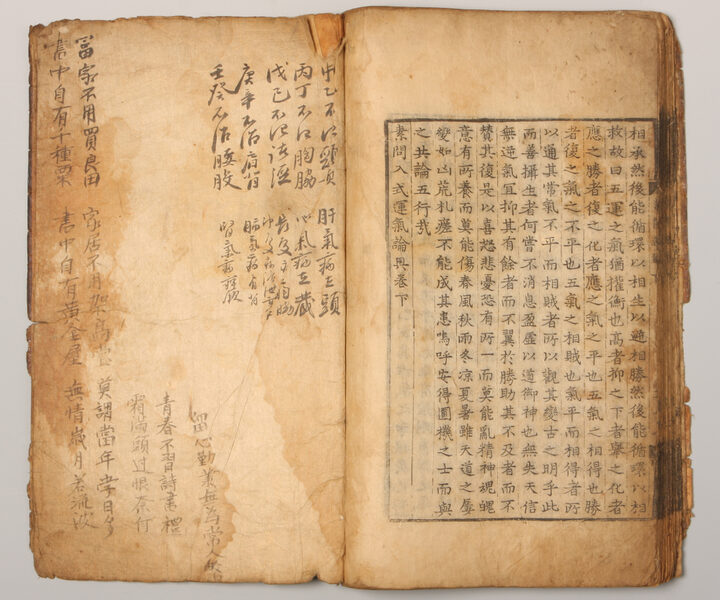 相承然後能循環以相生以遞相勝然後能循環以相
救故曰五運之氣猶權衡也高者抑之下者舉之化者
應之勝者復之化者應之氣之平也五氣之相得也勝
者復之氣之不平也五氣之相賊也氣平而相得者所
以通其常氣不平而相賊者所以觀其變古之明乎此
而善攝生者何嘗不消息盈虛以道御神也無失天信
無逆氣宜抑其有餘者而不翼於勝助其不及者而不
贊其復是以喜怒悲憂恐有所一而莫能亂精神魂魄
意有所養而莫能傷春風秋雨冬凉夏暑雖天道之辱
變如凶荒札瘥不能成其患嗚呼安得圓機之士而與
之共論五行哉
素問入式運氣論奧卷下
甲乙不治頭 肝氣病在頭
丙丁不治胸脇 心氣病在
戊己不治
庚辛不治肩背 肺氣病肩背
壬癸不治腰股 腎氣病腰股
冨家不用買良田
書中自有千種粟
家居不用架高堂
書中自有黃金屋
莫謂當年學日多
無情歲月若流波
青春不習詩書禮
霜頭邊恨奈何
留心勤無為常人